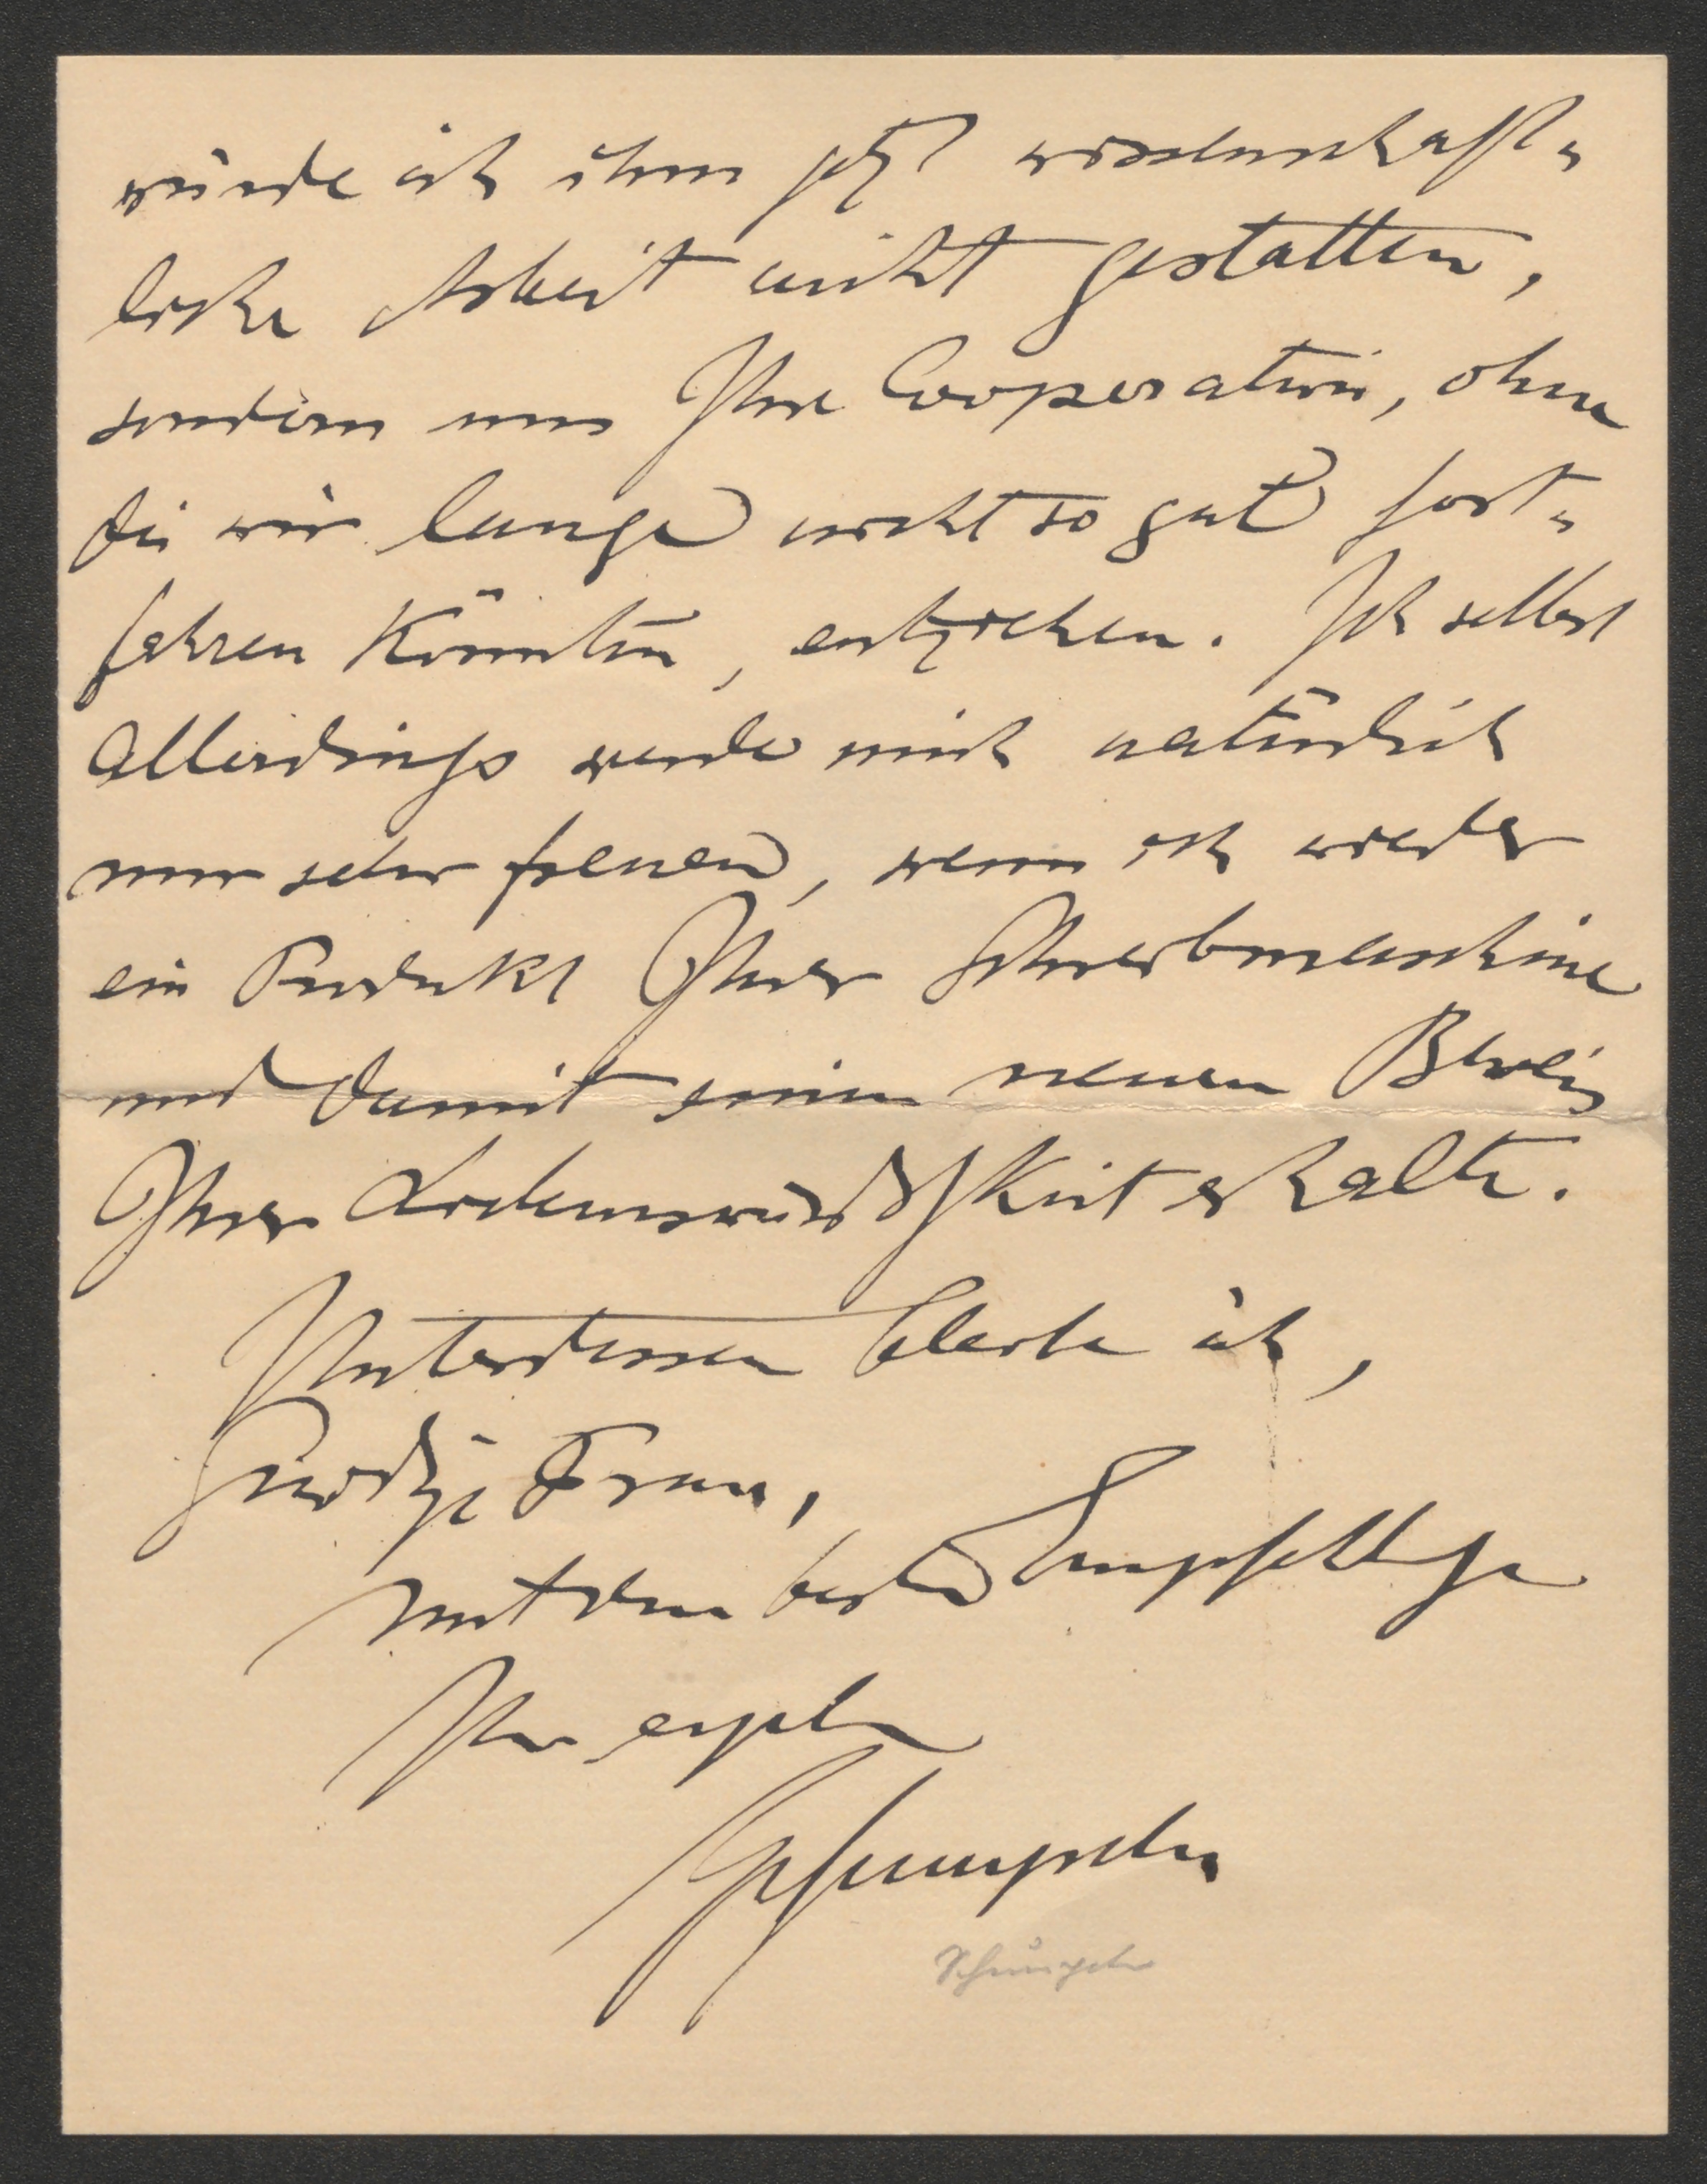 würde ich ihm jetzt wissenschaft=
liche Arbeit nicht gestatten,
sondern uns Ihre Cooperation, ohne
die wir lange nicht so gut fort=
fahren könnten, entziehen. Ich selbst
allerdings werde mich natürlich
nur sehr freuen, wenn ich wieder
ein Produkt Ihrer Schreibmaschine
und damit einen neuen Beweis
Ihrer Liebenswürdigkeit erhalte.
Unterdessen bleibe ich,
Gnädige Frau,
mit den besten Empfehlungen
Ihr ergebener
Schumpeter
Schumpeter